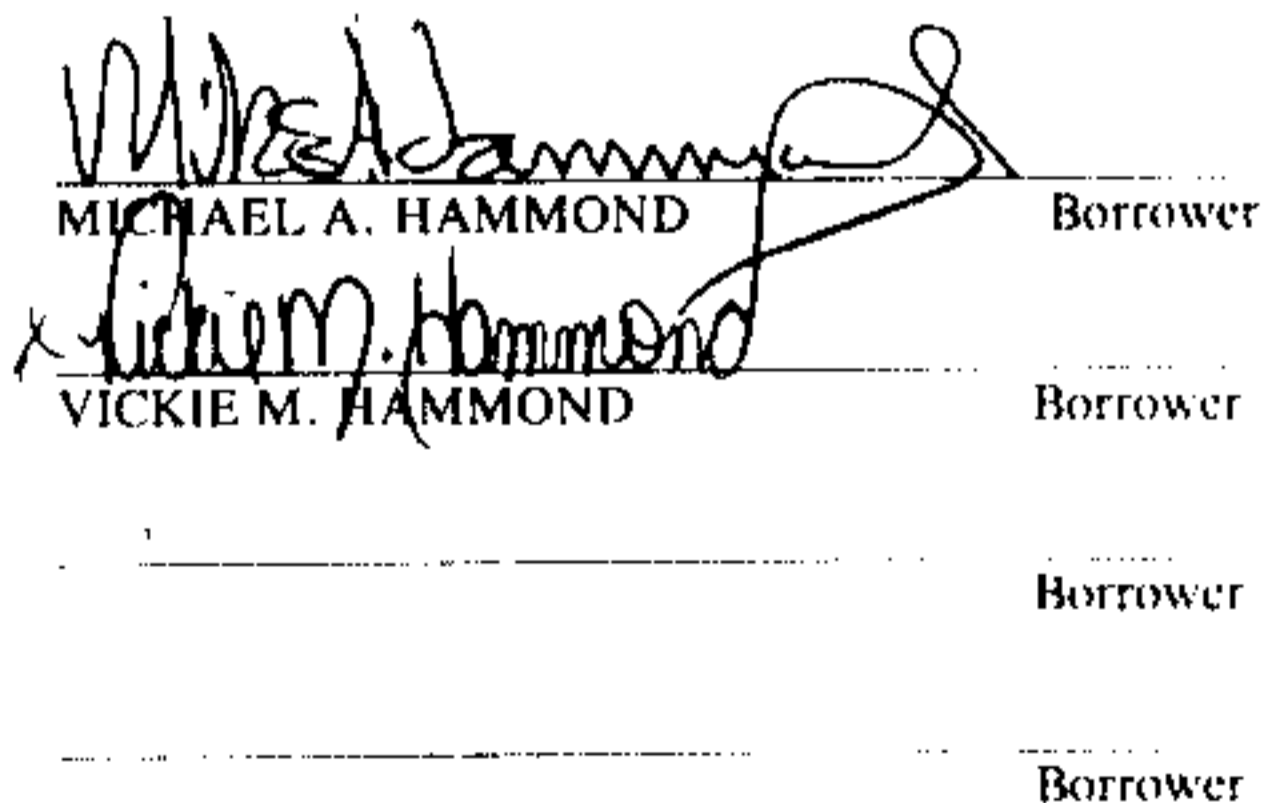 Mike A Hammond
MICHAEL A. HAMMOND Borrower
x Vickie M. Hammond
VICKIE M. HAMMOND Borrower
Borrower
Borrower